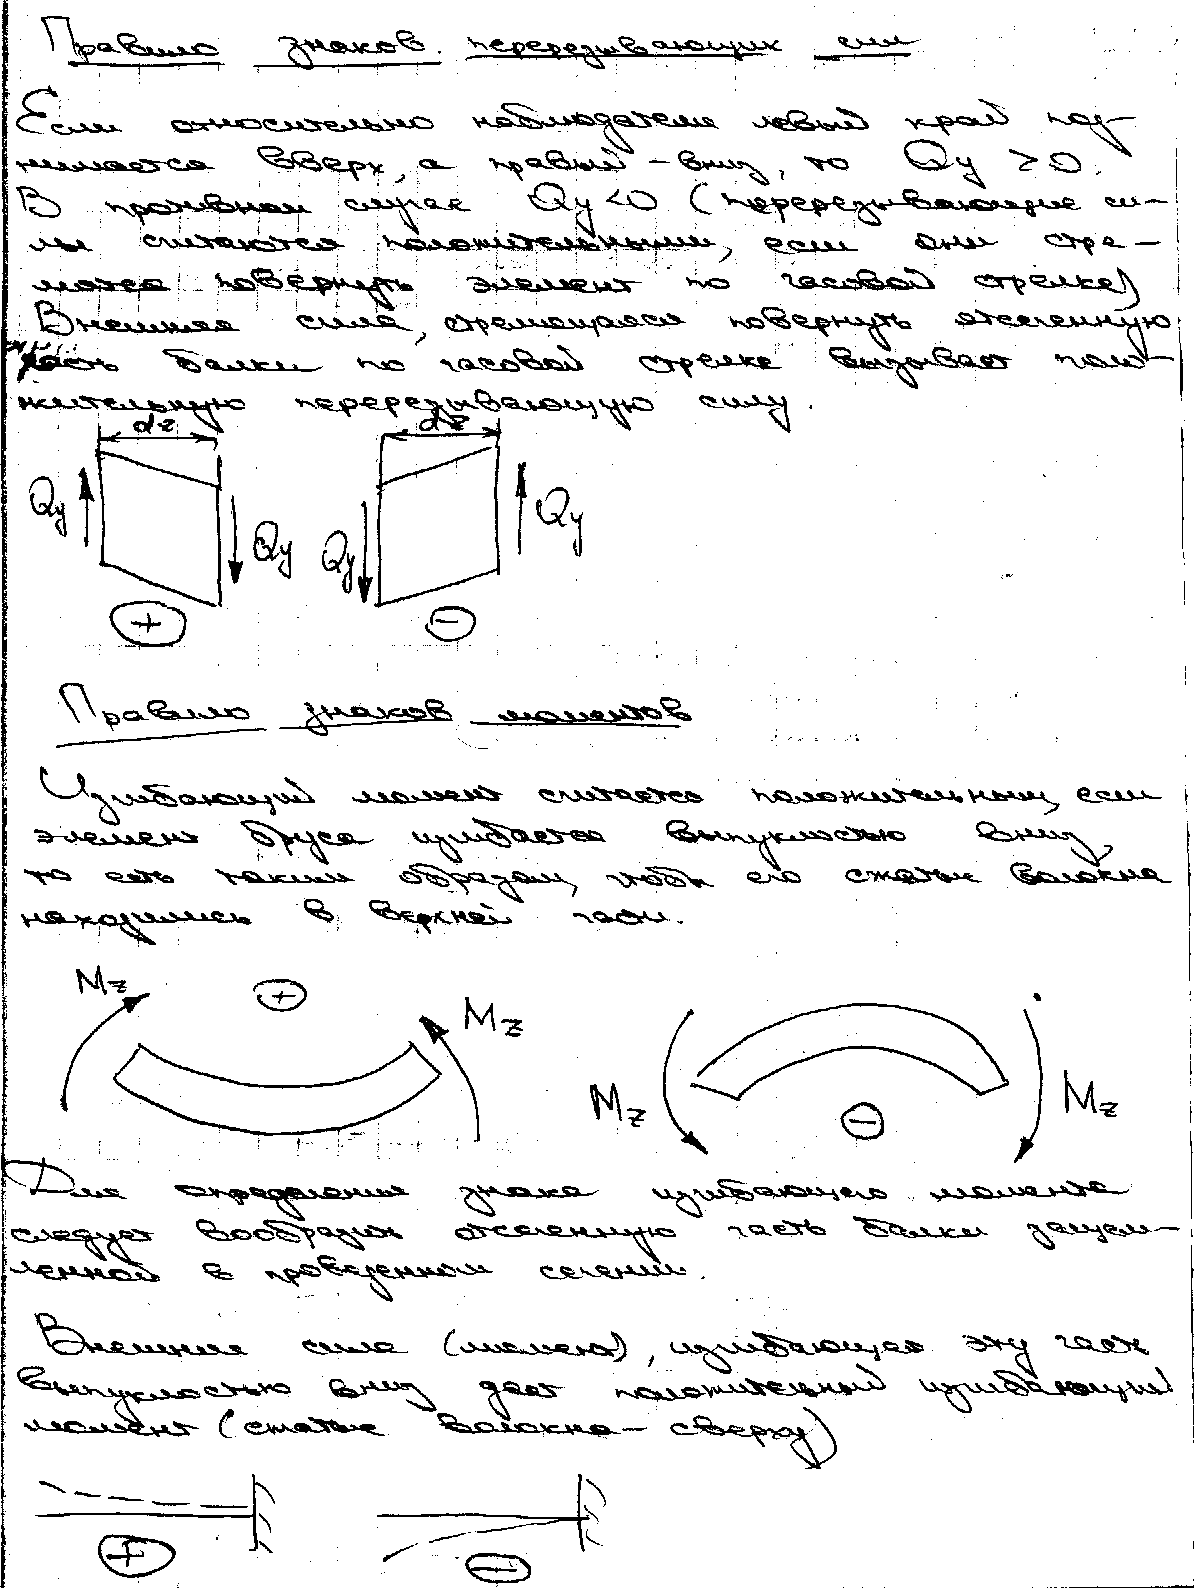 Правило знаков перерезывающих сил
Если относительно наблюдателя левый край под-
нимается вверх, а правый - вниз, то Qy > 0.
В противном случае Qy < 0 (перерезывающие си-
лы считаются положительными, если они стре-
мятся повернуть элемент по часовой стрелке)
Внешняя сила, стремящаяся повернуть отсеченную
часть балки по часовой стрелке вызывает поло-
жительную перерезывающую силу.
dz dz
Qy Qy Qy Qy
+ −
Правило знаков моментов
Изгибающий момент считается положительным, если
элемент бруса изгибается выпуклостью вниз,
то есть таким образом, чтобы его сжатые волокна
находились в верхней части.
Mz + Mz
Mz − Mz
Для определения знака изгибающего момента
следует вообразить отсеченную часть балки защем-
ленной в проведенном сечении.
Внешняя сила (момент), изгибающая эту часть
выпуклостью вниз дает положительный изгибающий
момент (сжатые волокна - сверху)
+ −